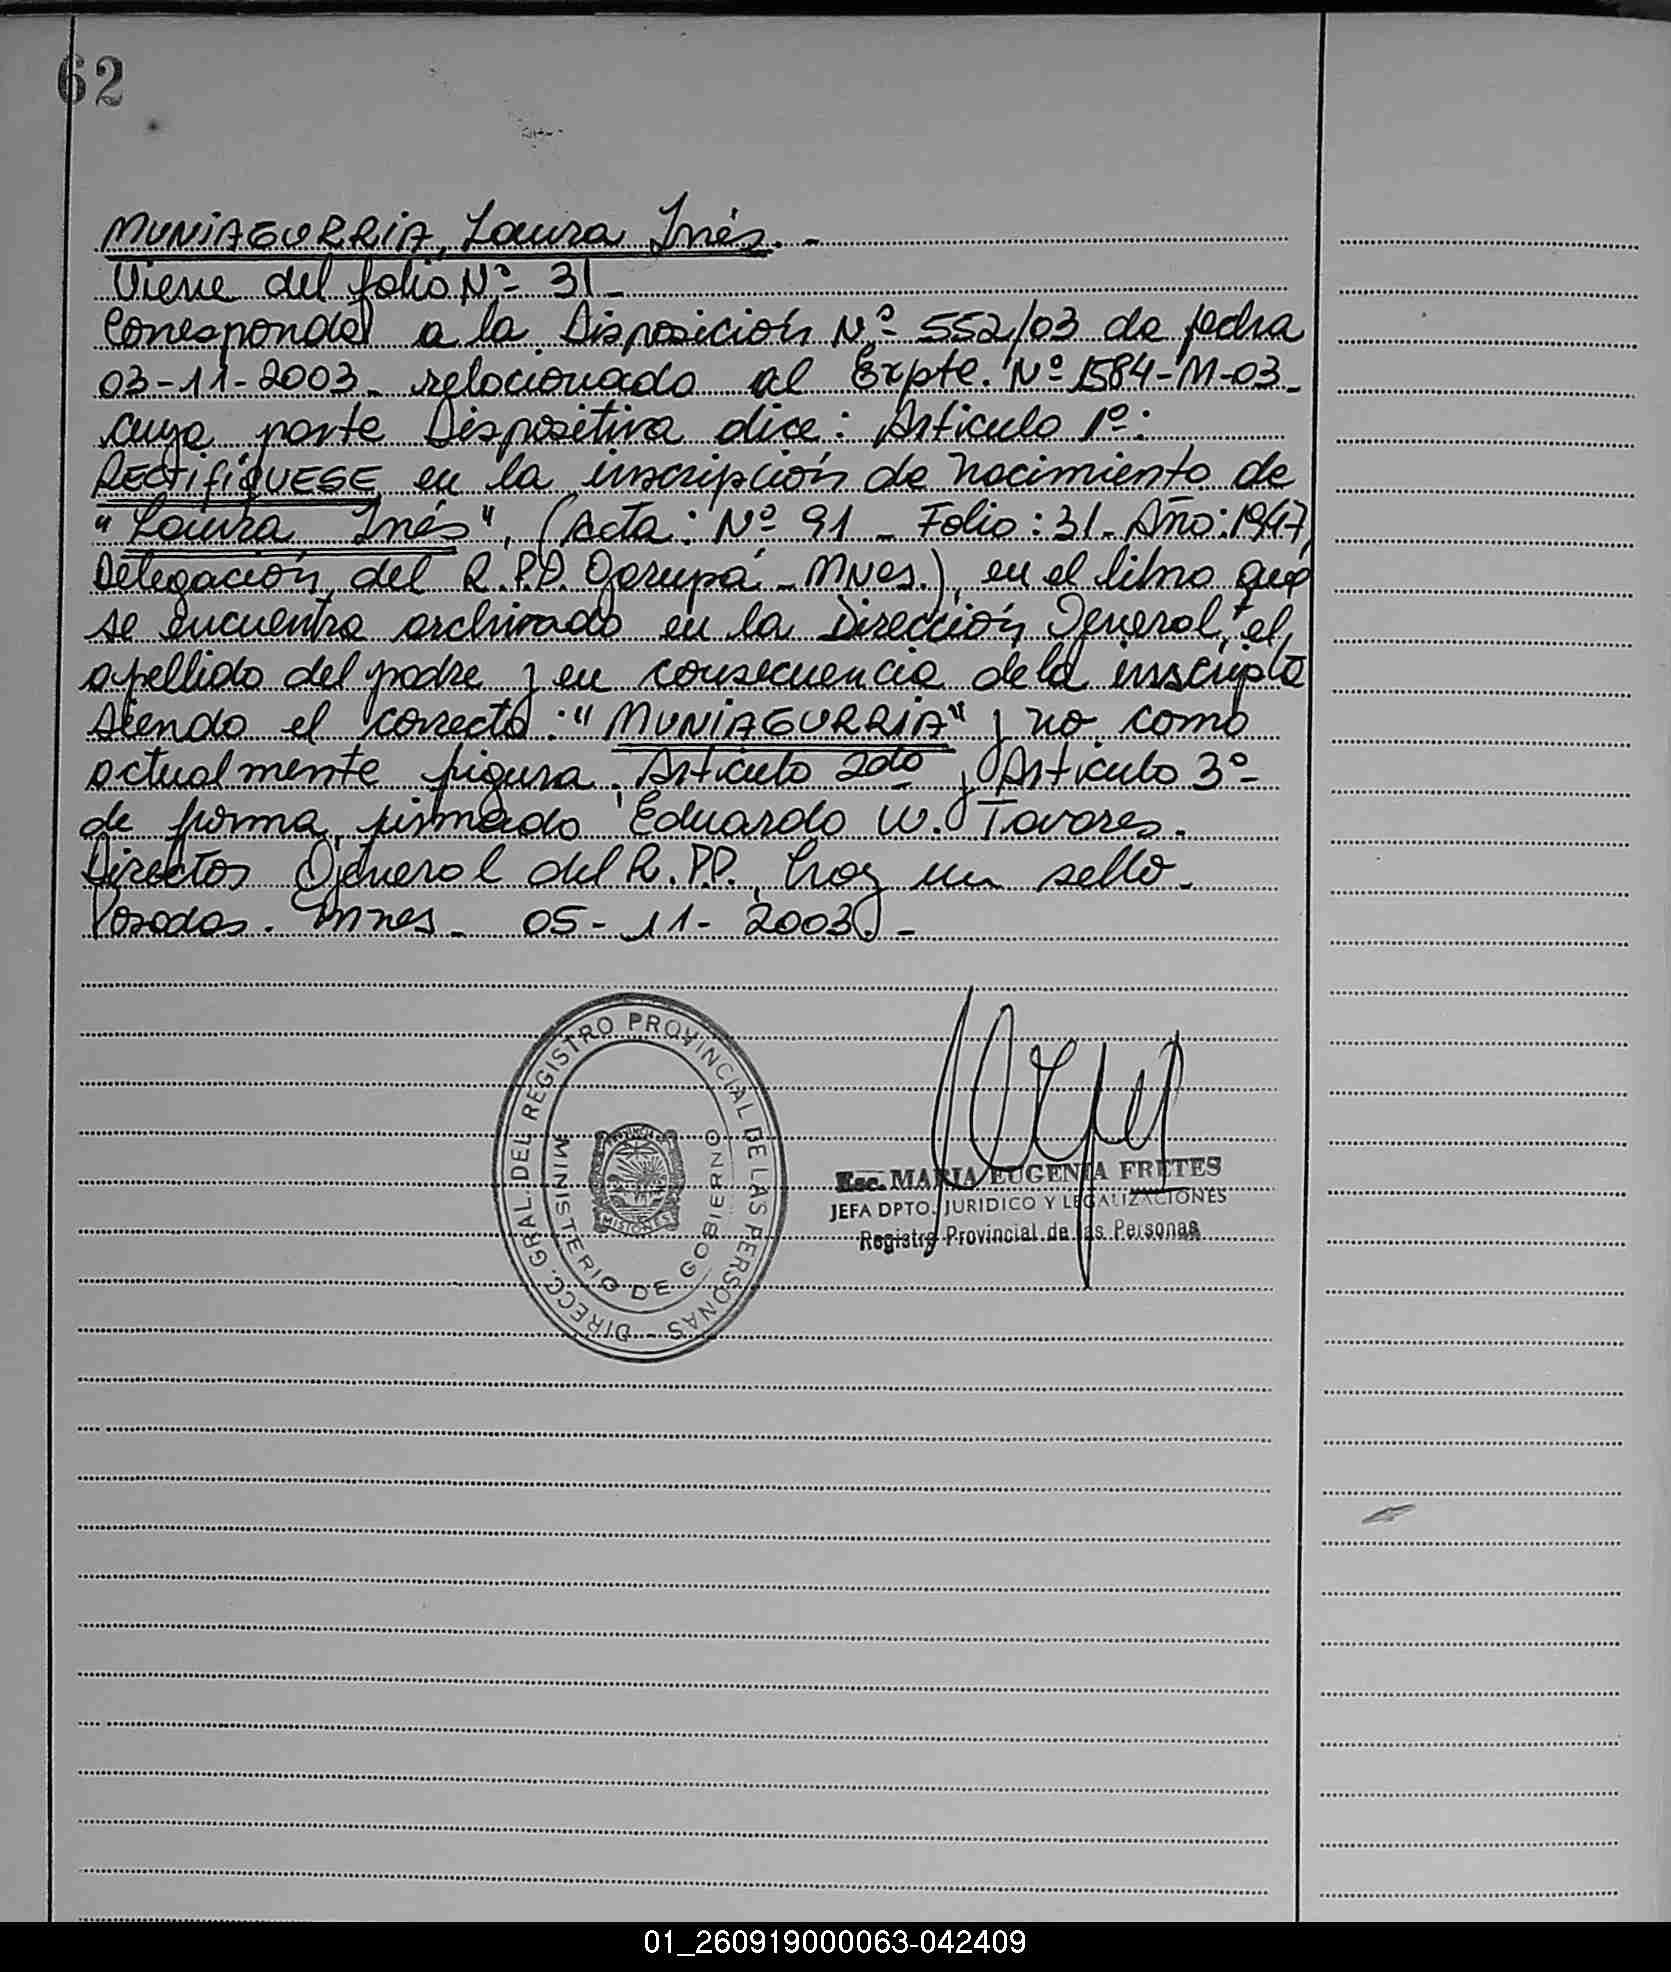 62
MUNIAGURRIA, Laura Inés. -
Viene del folio Nº 31 -
Corresponde a la Disposición Nº 552/03 de fecha
03-11-2003 - relacionado al Expte. Nº 1584-M-03 -
cuya parte Dispositiva dice: Articulo 1º:
RECTIFIQUESE en la inscripción de nacimiento de
"Laura Inés", (Acta: Nº 91 - Folio: 31 - Año: 1947,
Delegación del R.P.P. Garupá - Mnes.), en el libro que
se encuentra archivado en la Dirección General, el
apellido del padre y en consecuencia de la inscripta
siendo el correcto: "MUNIAGURRIA" y no como
actualmente figura. Articulo 2do y Articulo 3º -
de forma, firmado Eduardo W. Tavares.
Director General del R.P.P. hay un sello -
Posadas. Mnes - 05 - 11 - 2003) -
DIRECC. GRAL. DEL REGISTRO PROVINCIAL DE LAS PERSONAS -
MINISTERIO DE GOBIERNO
PROVINCIA DE
MISIONES
Esc. MARIA EUGENIA FRETES
JEFA DPTO. JURIDICO Y LEGALIZACIONES
Registro Provincial de las Personas
01_260919000063-042409